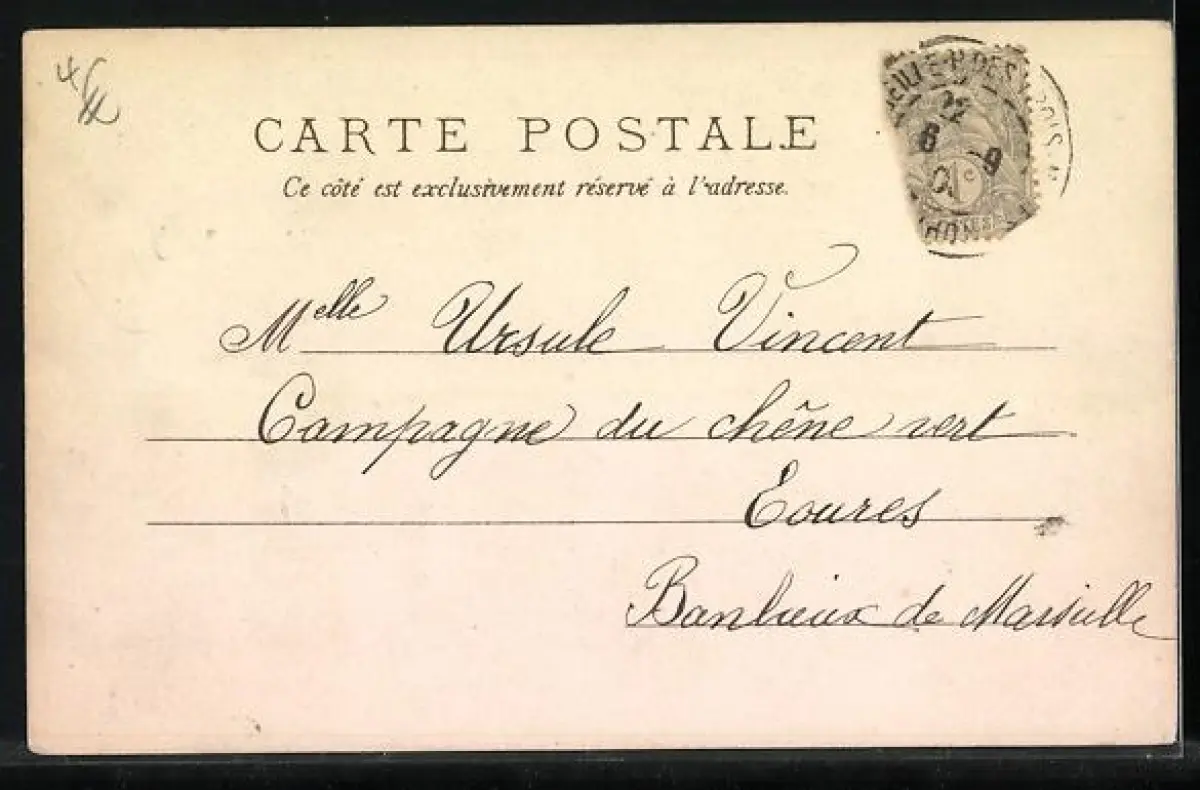 CARTE POSTALE
Ce côté est exclusivement réservé à l'adresse.
6 9
1 c
Melle Ursule Vincent
Campagne du chêne vert
Eoures
Banlieux de Marseille